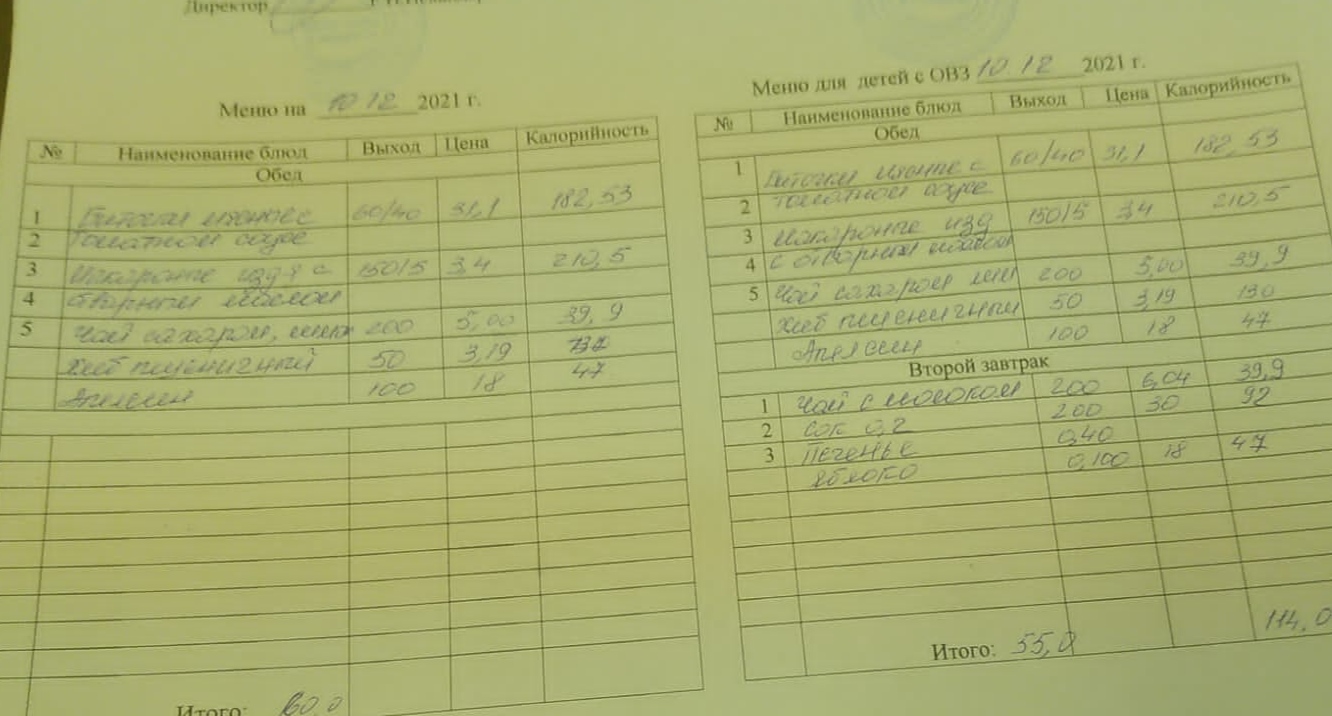 Директор
Меню на 10 12 2021 г.
№ Наименование блюд Выход Цена Калорийность
Обед
1 Биточки мясные с 60/40 31,1 182,53
2 томатном соусе
3 Макаронные изд-я с 150/5 3,4 210,5
4 отварным маслом
5 Чай сахаром, 200 5,00 39,9
Хлеб пшеничный 50 3,19
Апельсин 100 18 47
Итого: 60.0
Меню для детей с ОВЗ 10 12 2021 г.
№ Наименование блюд Выход Цена Калорийность
Обед
1 Биточки мясные с 60/40 31,1 182,53
2 томатном соусе
3 Макаронные изд 150/5 3,4 210,5
4 с отварным маслом
5 Чай сахаром 200 5,00 39,9
Хлеб пшеничный 50 3,19 130
Апельсин 100 18 47
Второй завтрак
1 Чай с молоком 200 6,04 39,9
2 Сок 0,2 200 30 92
3 Печенье 0,40
Яблоко 0,100 18 47
Итого: 55,0 114,0